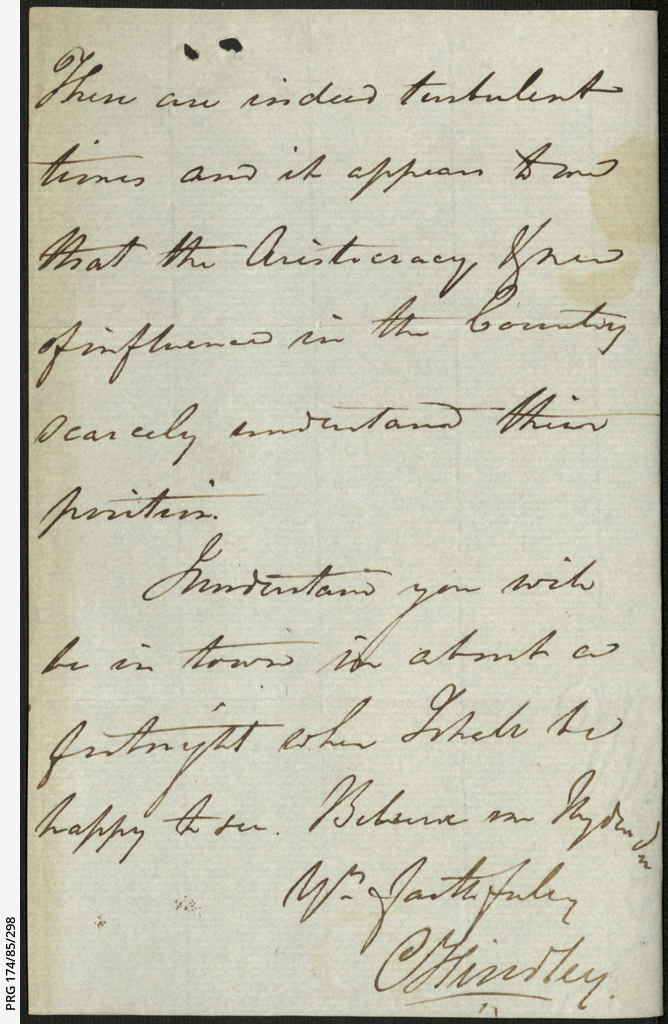 These are indeed turbulent
times and it appears to me
that the Aristocracy & men
of influence in the Country
scarcely understand their
position.
I understand you will
be in town in about a
fortnight when I shall be
happy to see. Believe me My dear Sir
Yrs faithfully
CHindley.
PRG 174/85/298